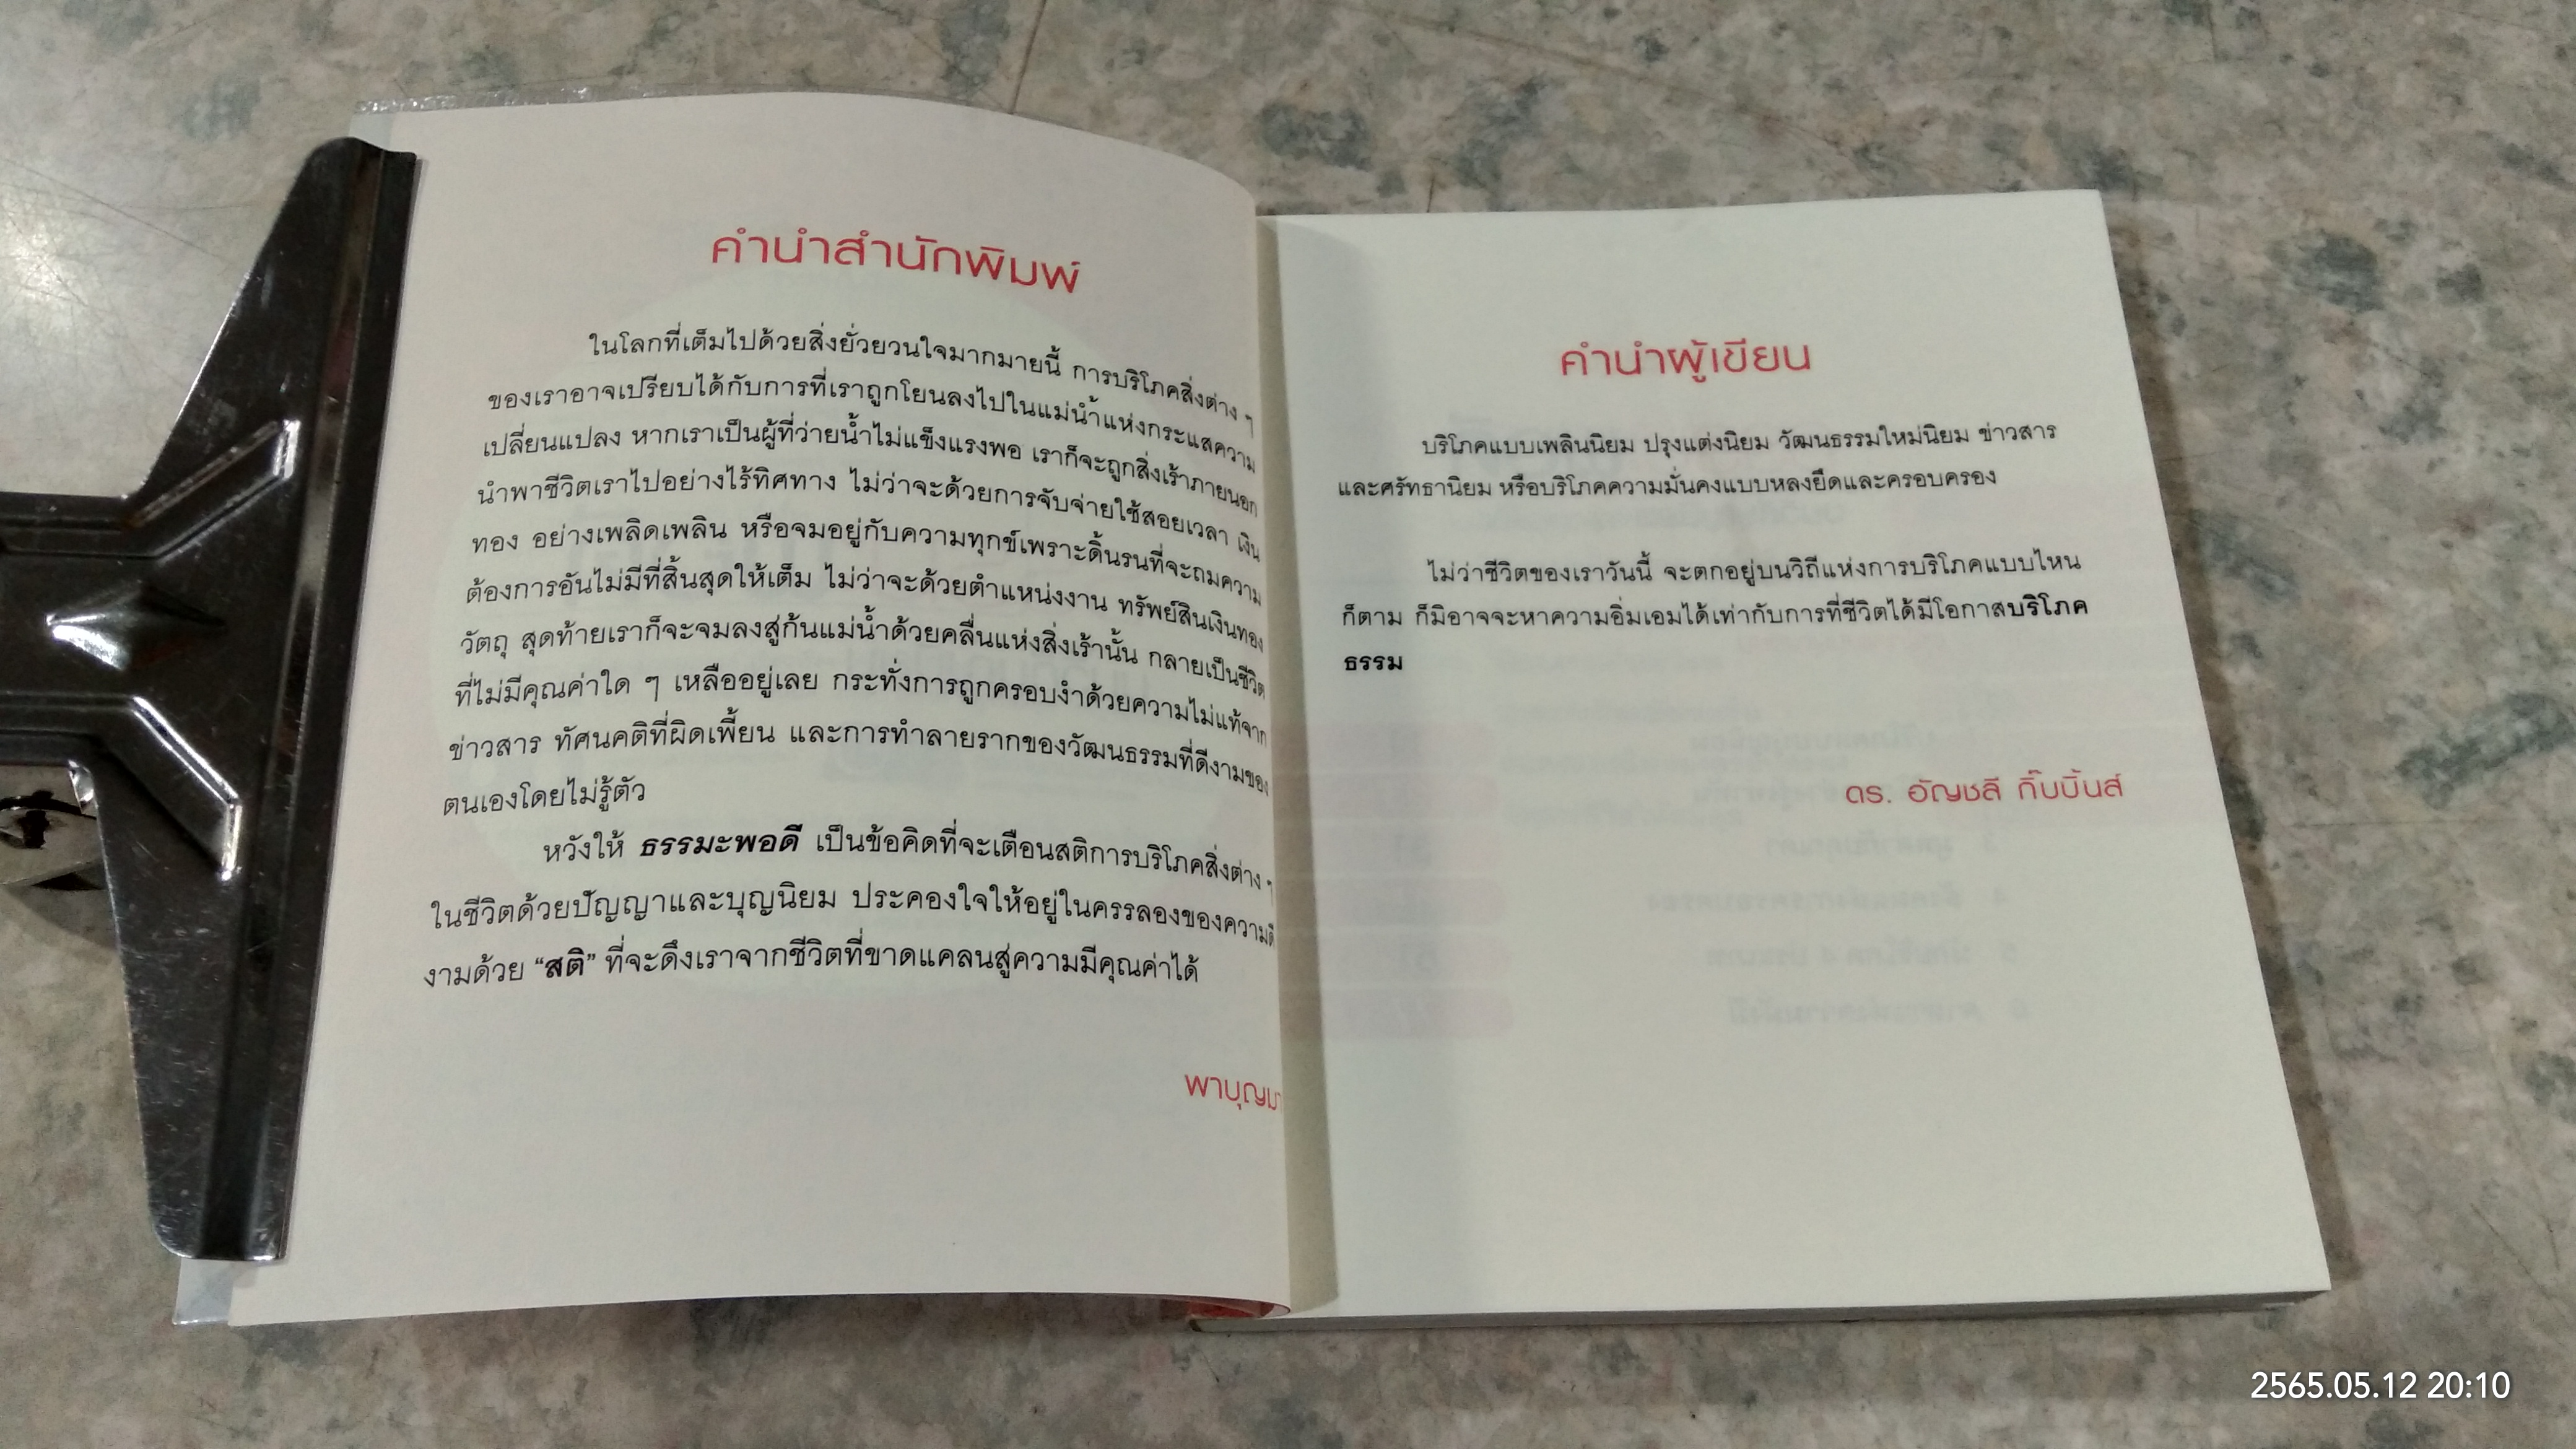 คำนำสำนักพิมพ์
ในโลกที่เต็มไปด้วยสิ่งยั่วยวนใจมากมายนี้ การบริโภคสิ่งต่าง ๆ
ของเราอาจเปรียบได้กับการที่เราถูกโยนลงไปในแม่น้ำแห่งกระแสความ
เปลี่ยนแปลง หากเราเป็นผู้ที่ว่ายน้ำไม่แข็งแรงพอ เราก็จะถูกสิ่งเร้าภายนอก
นำพาชีวิตเราไปอย่างไร้ทิศทาง ไม่ว่าจะด้วยการจับจ่ายใช้สอยเวลา เงิน
ทอง อย่างเพลิดเพลิน หรือจมอยู่กับความทุกข์เพราะดิ้นรนที่จะถมความ
ต้องการอันไม่มีที่สิ้นสุดให้เต็ม ไม่ว่าจะด้วยตำแหน่งงาน ทรัพย์สินเงินทอง
วัตถุ สุดท้ายเราก็จะจมลงสู่ก้นแม่น้ำด้วยคลื่นแห่งสิ่งเร้านั้น กลายเป็นชีวิต
ที่ไม่มีคุณค่าใด ๆ เหลืออยู่เลย กระทั่งการถูกครอบงำด้วยความไม่แท้จาก
ข่าวสาร ทัศนคติที่ผิดเพี้ยน และการทำลายรากของวัฒนธรรมที่ดีงามของ
ตนเองโดยไม่รู้ตัว
หวังให้ ธรรมะพอดี เป็นข้อคิดที่จะเตือนสติการบริโภคสิ่งต่าง ๆ
ในชีวิตด้วยปัญญาและบุญนิยม ประคองใจให้อยู่ในครรลองของความดี
งามด้วย “สติ” ที่จะดึงเราจากชีวิตที่ขาดแคลนสู่ความมีคุณค่าได้
พาบุญมา
คำนำผู้เขียน
บริโภคแบบเพลินนิยม ปรุงแต่งนิยม วัฒนธรรมใหม่นิยม ข่าวสาร
และศรัทธานิยม หรือบริโภคความมั่นคงแบบหลงยึดและครอบครอง
ไม่ว่าชีวิตของเราวันนี้ จะตกอยู่บนวิถีแห่งการบริโภคแบบไหน
ก็ตาม ก็มิอาจจะหาความอิ่มเอมได้เท่ากับการที่ชีวิตได้มีโอกาสบริโภค
ธรรม
ดร. อัญชลี กิ๊บบิ้นส์
2565.05.12 20:10